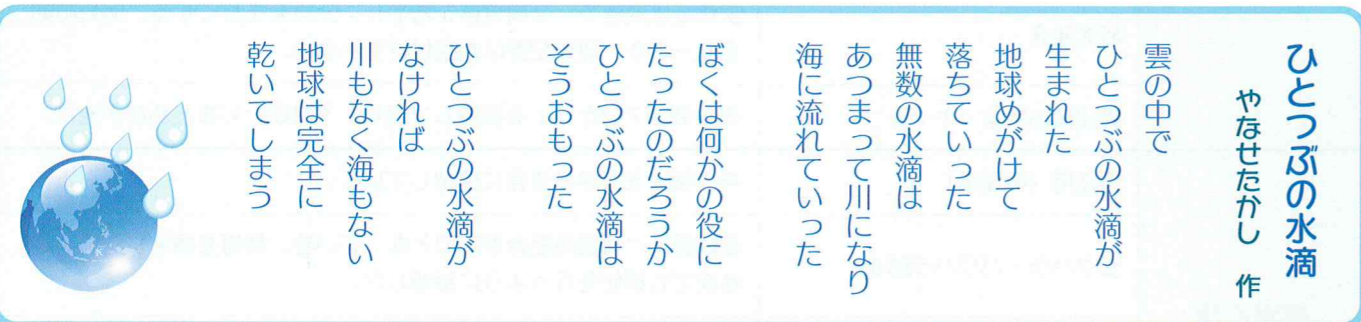 ひとつぶの水滴
やなせたかし　作
雲の中で
ひとつぶの水滴が
生まれた
地球めがけて
落ちていった
無数の水滴は
あつまって川になり
海に流れていった
ぼくは何かの役に
たったのだろうか
ひとつぶの水滴は
そうおもった
ひとつぶの水滴が
なければ
川もなく海もない
地球は完全に
乾いてしまう